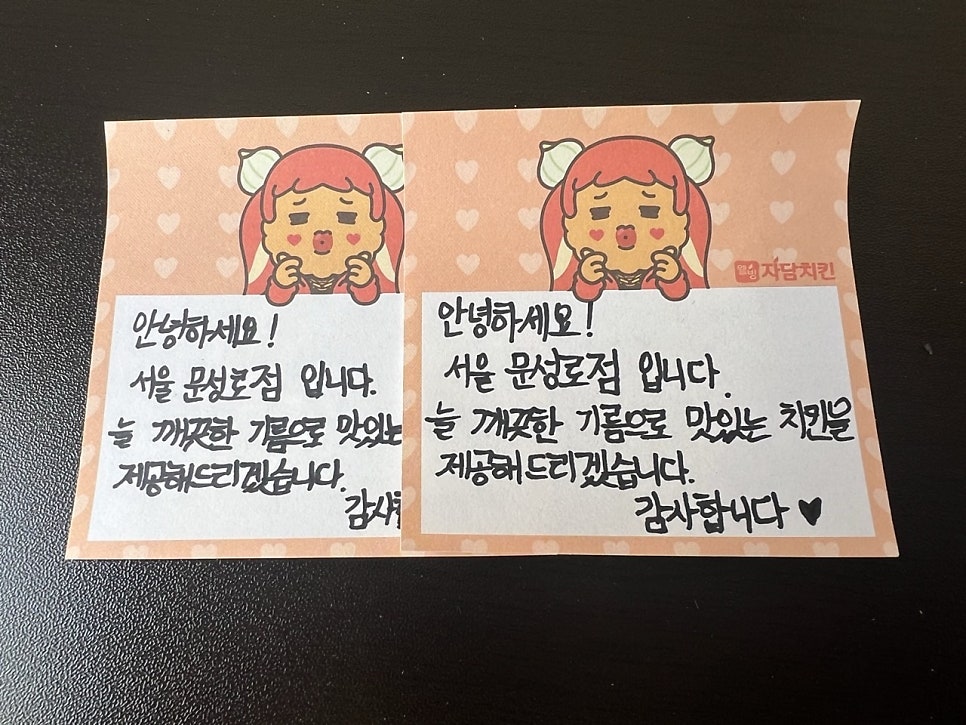 안녕하세요!
서울 문성로점 입니다.
늘 깨끗한 기름으로 맛있는
제공해드리겠습니다.
감사합
웰빙 자담치킨
안녕하세요!
서울 문성로점 입니다.
늘 깨끗한 기름으로 맛있는 치킨을
제공해드리겠습니다.
감사합니다 ♥